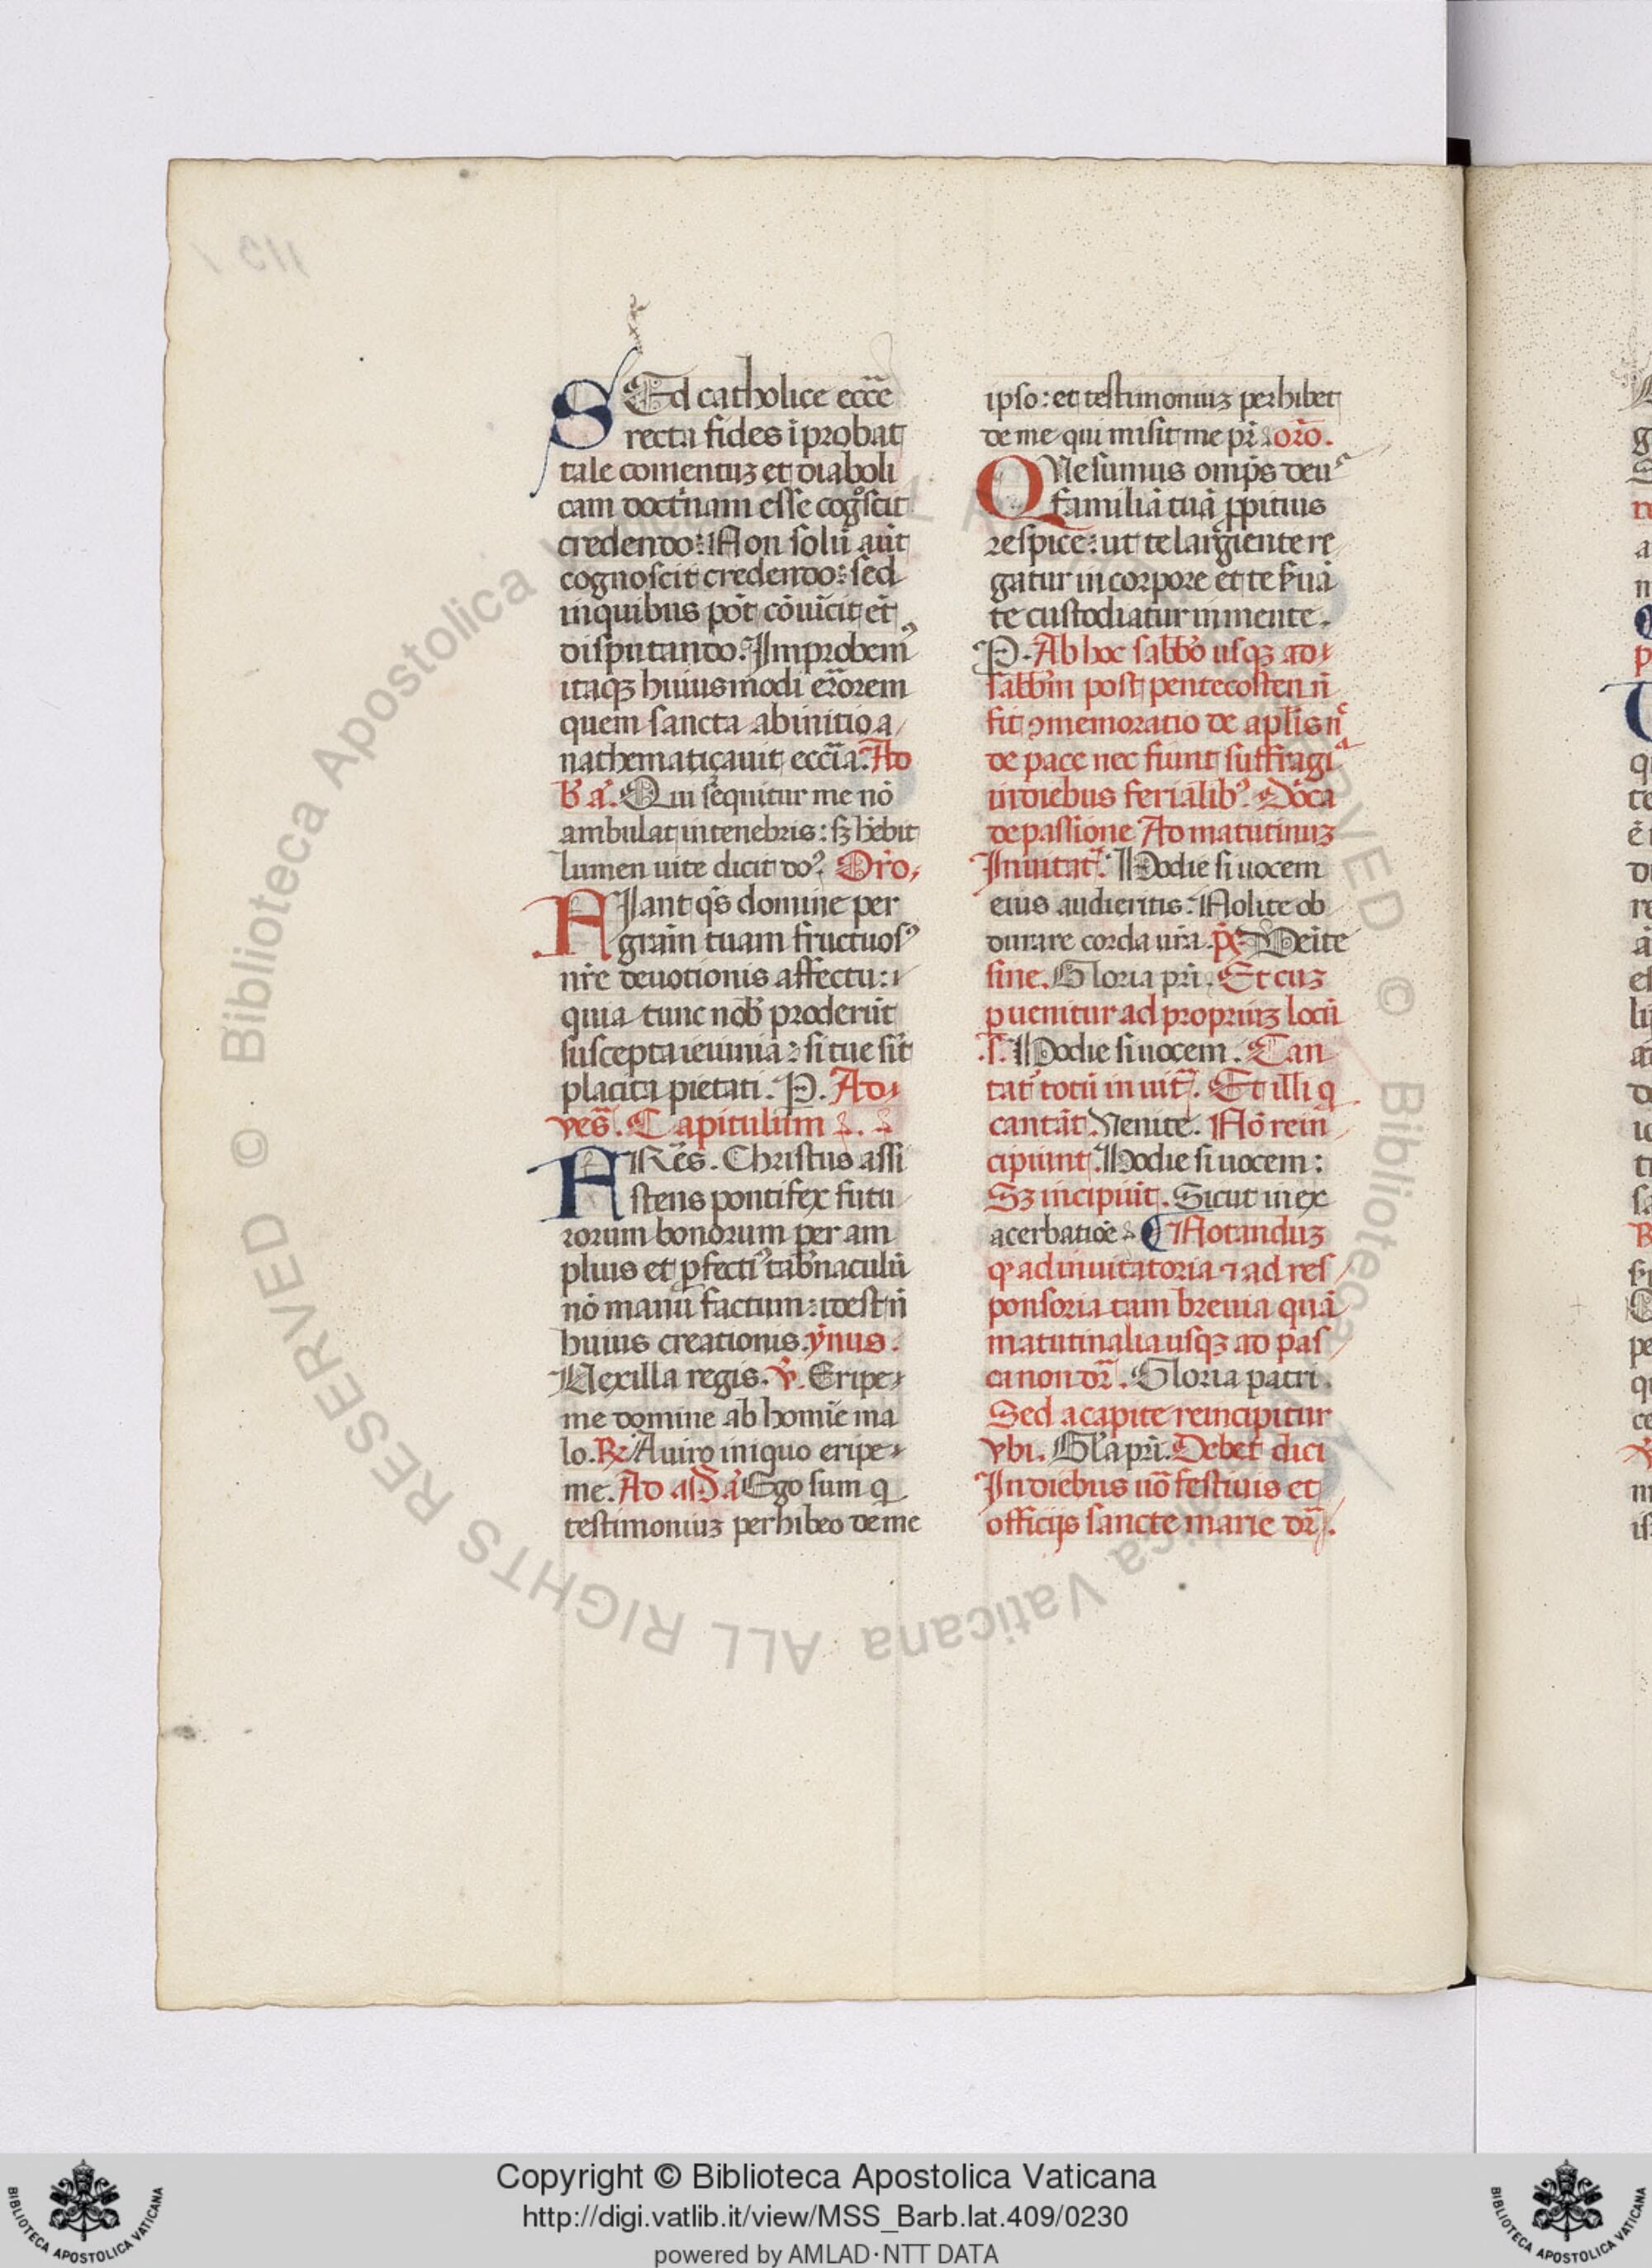 SEd catholice ecc̄e
recta fides īprobat
tale comentuʒ et diaboli
cam doct'nam esse cog'scit
credendo: Non solū aūt
cognoscit credendo: sed
in quibus pōt cōuīcit et
disputando. Improbem'
itaqʒ huiusmodi errorem
quem sancta ab initio a
nathematiçauit eccīa. Ad
b' a'. Qui sequitur me nō
ambulat in tenebris: sʒ hēbit
lumen uite dicit do'. Orō.
FIant q̄s domine per
grām tuam fructuos'
nr̄e deuotionis affectu:
quia tunc nob' proderūt
suscepta ieiunia: si tue sīt
placita pietati. P. Ad
ves̄. Capitulum
FRēs. Christus assi
stens pontifex futu
rorum bonorum per am
plius et ꝑfecti' tab'naculū
nō manu factum: idest n̄
huius creationis. ȳnus.
Vexilla regis. ℣. Eripe
me domine ab homīe ma
lo. ℟ A uiro iniquo eripe
me. Ad a' Ego sum q
testimoniuʒ perhibeo de me
ipso: et testimoniuʒ perhibet
de me qui misit me pr̄. orō.
QVesumus omp̄s deus
familiā tuā ꝓpitius
respice: ut te largiente re
gatur in corpore et te s'uā
te custodiatur in mente.
P. Ab hoc sabb'o usqʒ ad
sabb'm post pentecosten n̄
fit ꝯmemoratio de aplīs n̄c
de pace nec fiunt suffragia
in diebus ferialib'. Dōca
de passione Ad matutinuʒ
Inuitat'. Hodie si uocem
eius audieritis: Nolite ob
durare corda ur̄a. p̄s Venite
sine. Gloria pri. Et cuʒ
ꝑuenitur ad propriuʒ locū
.s. Hodie si uocem. Can
tat' totū inuit'. Et illi q
cantāt. Venite. Nō rein
cipiunt. Hodie si uocem:
Sʒ incipiūt. Sicut in ex
acerbatiōe ¶ Notanduʒ
ꝙ ad inuitatoria ⁊ ad res
ponsoria tam breuia quā
matutinalia usqʒ ad pas
ca non dr̄. Gloria patri.
Sed a capite reincipitur
vbi. Gl'a pri. Debet dici
In diebus uō festiuis et
officijs sancte marie dr̄.
Copyright © Biblioteca Apostolica Vaticana
http://digi.vatlib.it/view/MSS_Barb.lat.409/0230
powered by AMLAD·NTT DATA
BIBLIOTECA APOSTOLICA VATICANA
BIBLIOTECA APOSTOLICA VATICANA
© Biblioteca Apostolica Vaticana ALL RIGHTS RESERVED